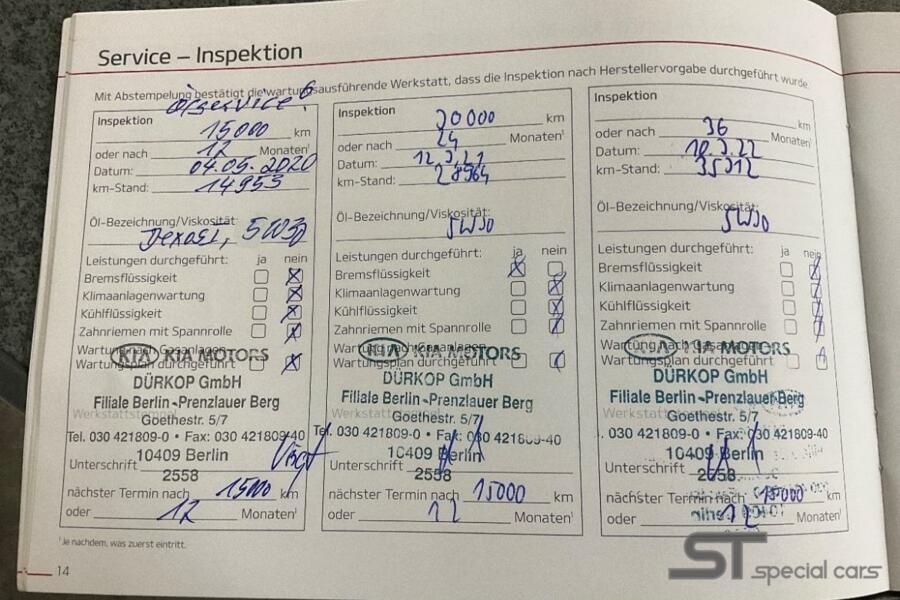 Service – Inspektion
Mit Abstempelung bestätigt die wartungsausführende Werkstatt, dass die Inspektion nach Herstellervorgabe durchgeführt wurde.
Ölservice!
Inspektion
15000 km
oder nach 12 Monaten¹
Datum: 04.05.2020
km-Stand: 14953
Öl-Bezeichnung/Viskosität:
Dexos1, 5W30
Leistungen durchgeführt: ja nein
Bremsflüssigkeit
Klimaanlagenwartung
Kühlflüssigkeit
Zahnriemen mit Spannrolle
Wartung nach Gasanlagen-
Wartungsplan durchgeführt
KIA KIA MOTORS
DÜRKOP GmbH
Filiale Berlin-Prenzlauer Berg
Werkstattstempel
Goethestr. 5/7
Tel. 030 421809-0 • Fax: 030 421809-40
10409 Berlin
Unterschrift
2558
nächster Termin nach 15000 km
oder 12 Monaten¹
Inspektion
30000 km
oder nach 24 Monaten¹
Datum: 12.3.21
km-Stand: 28964
Öl-Bezeichnung/Viskosität:
5W30
Leistungen durchgeführt: ja nein
Bremsflüssigkeit
Klimaanlagenwartung
Kühlflüssigkeit
Zahnriemen mit Spannrolle
Wartung nach Gasanlagen-
Wartungsplan durchgeführt
KIA KIA MOTORS
DÜRKOP GmbH
Filiale Berlin-Prenzlauer Berg
Werkstattstempel
Goethestr. 5/7
Tel. 030 421809-0 • Fax: 030 421809-40
10409 Berlin
Unterschrift
2558
nächster Termin nach 15000 km
oder 12 Monaten¹
Inspektion
km
oder nach 36 Monaten¹
Datum: 10.3.22
km-Stand: 35312
Öl-Bezeichnung/Viskosität:
5W30
Leistungen durchgeführt: ja nein
Bremsflüssigkeit
Klimaanlagenwartung
Kühlflüssigkeit
Zahnriemen mit Spannrolle
Wartung nach Gasanlagen-
Wartungsplan durchgeführt
KIA KIA MOTORS
DÜRKOP GmbH
Filiale Berlin-Prenzlauer Berg
Werkstattstempel
Goethestr. 5/7
Tel. 030 421809-0 • Fax: 030 421809-40
10409 Berlin
Unterschrift
2558
nächster Termin nach 15000 km
oder 12 Monaten¹
¹ Je nachdem, was zuerst eintritt.
14
ST special cars